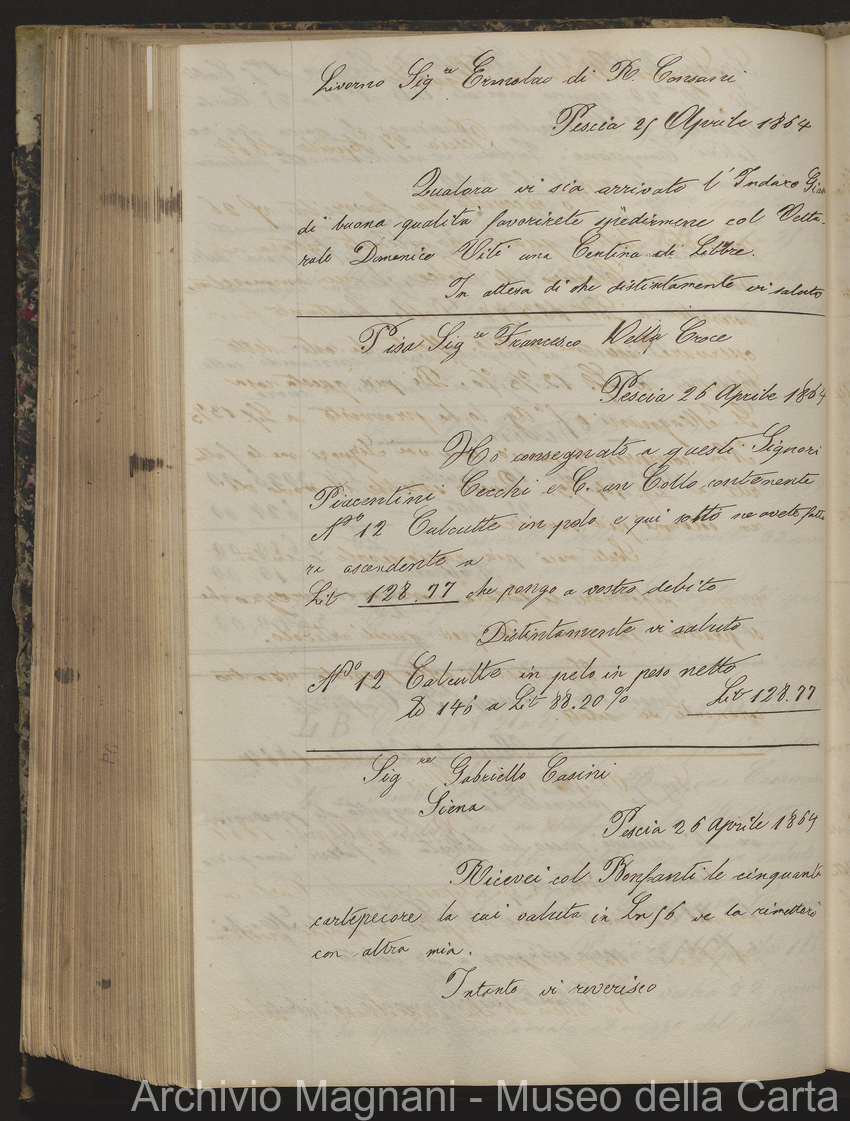 Livorno Sig.re Ermolao di R. Consani
Pescia 25 Aprile 1864
Qualora vi sia arrivato l'Indaco
di buona qualità favorirete spedirmene col Vettu-
rale Domenico Viti una Centina di Libbre.
In attesa di che distintamente vi saluto
Pisa Sig.re Francesco Della Croce
Pescia 26 Aprile 1864
Ho consegnato a questi Signori
Piacentini Cecchi e C. un Collo contenente
N.o 12 Calcutte in pelo e qui sotto ne avete fattu
ra ascendente a
Lit 128.77 che pongo a vostro debito
Distintamente vi saluto
N.o 12 Calcutte in pelo in peso netto
146 a Lit 88.20 % Lit 128.77
Sig.re Gabriello Casini
Siena
Pescia 26 Aprile 1864
Ricevei col Bonfanti le cinquanta
cartepecore la cui valuta in Ln 56 ve la rimetterò
con altra mia.
Intanto vi reverisco
Archivio Magnani - Museo della Carta